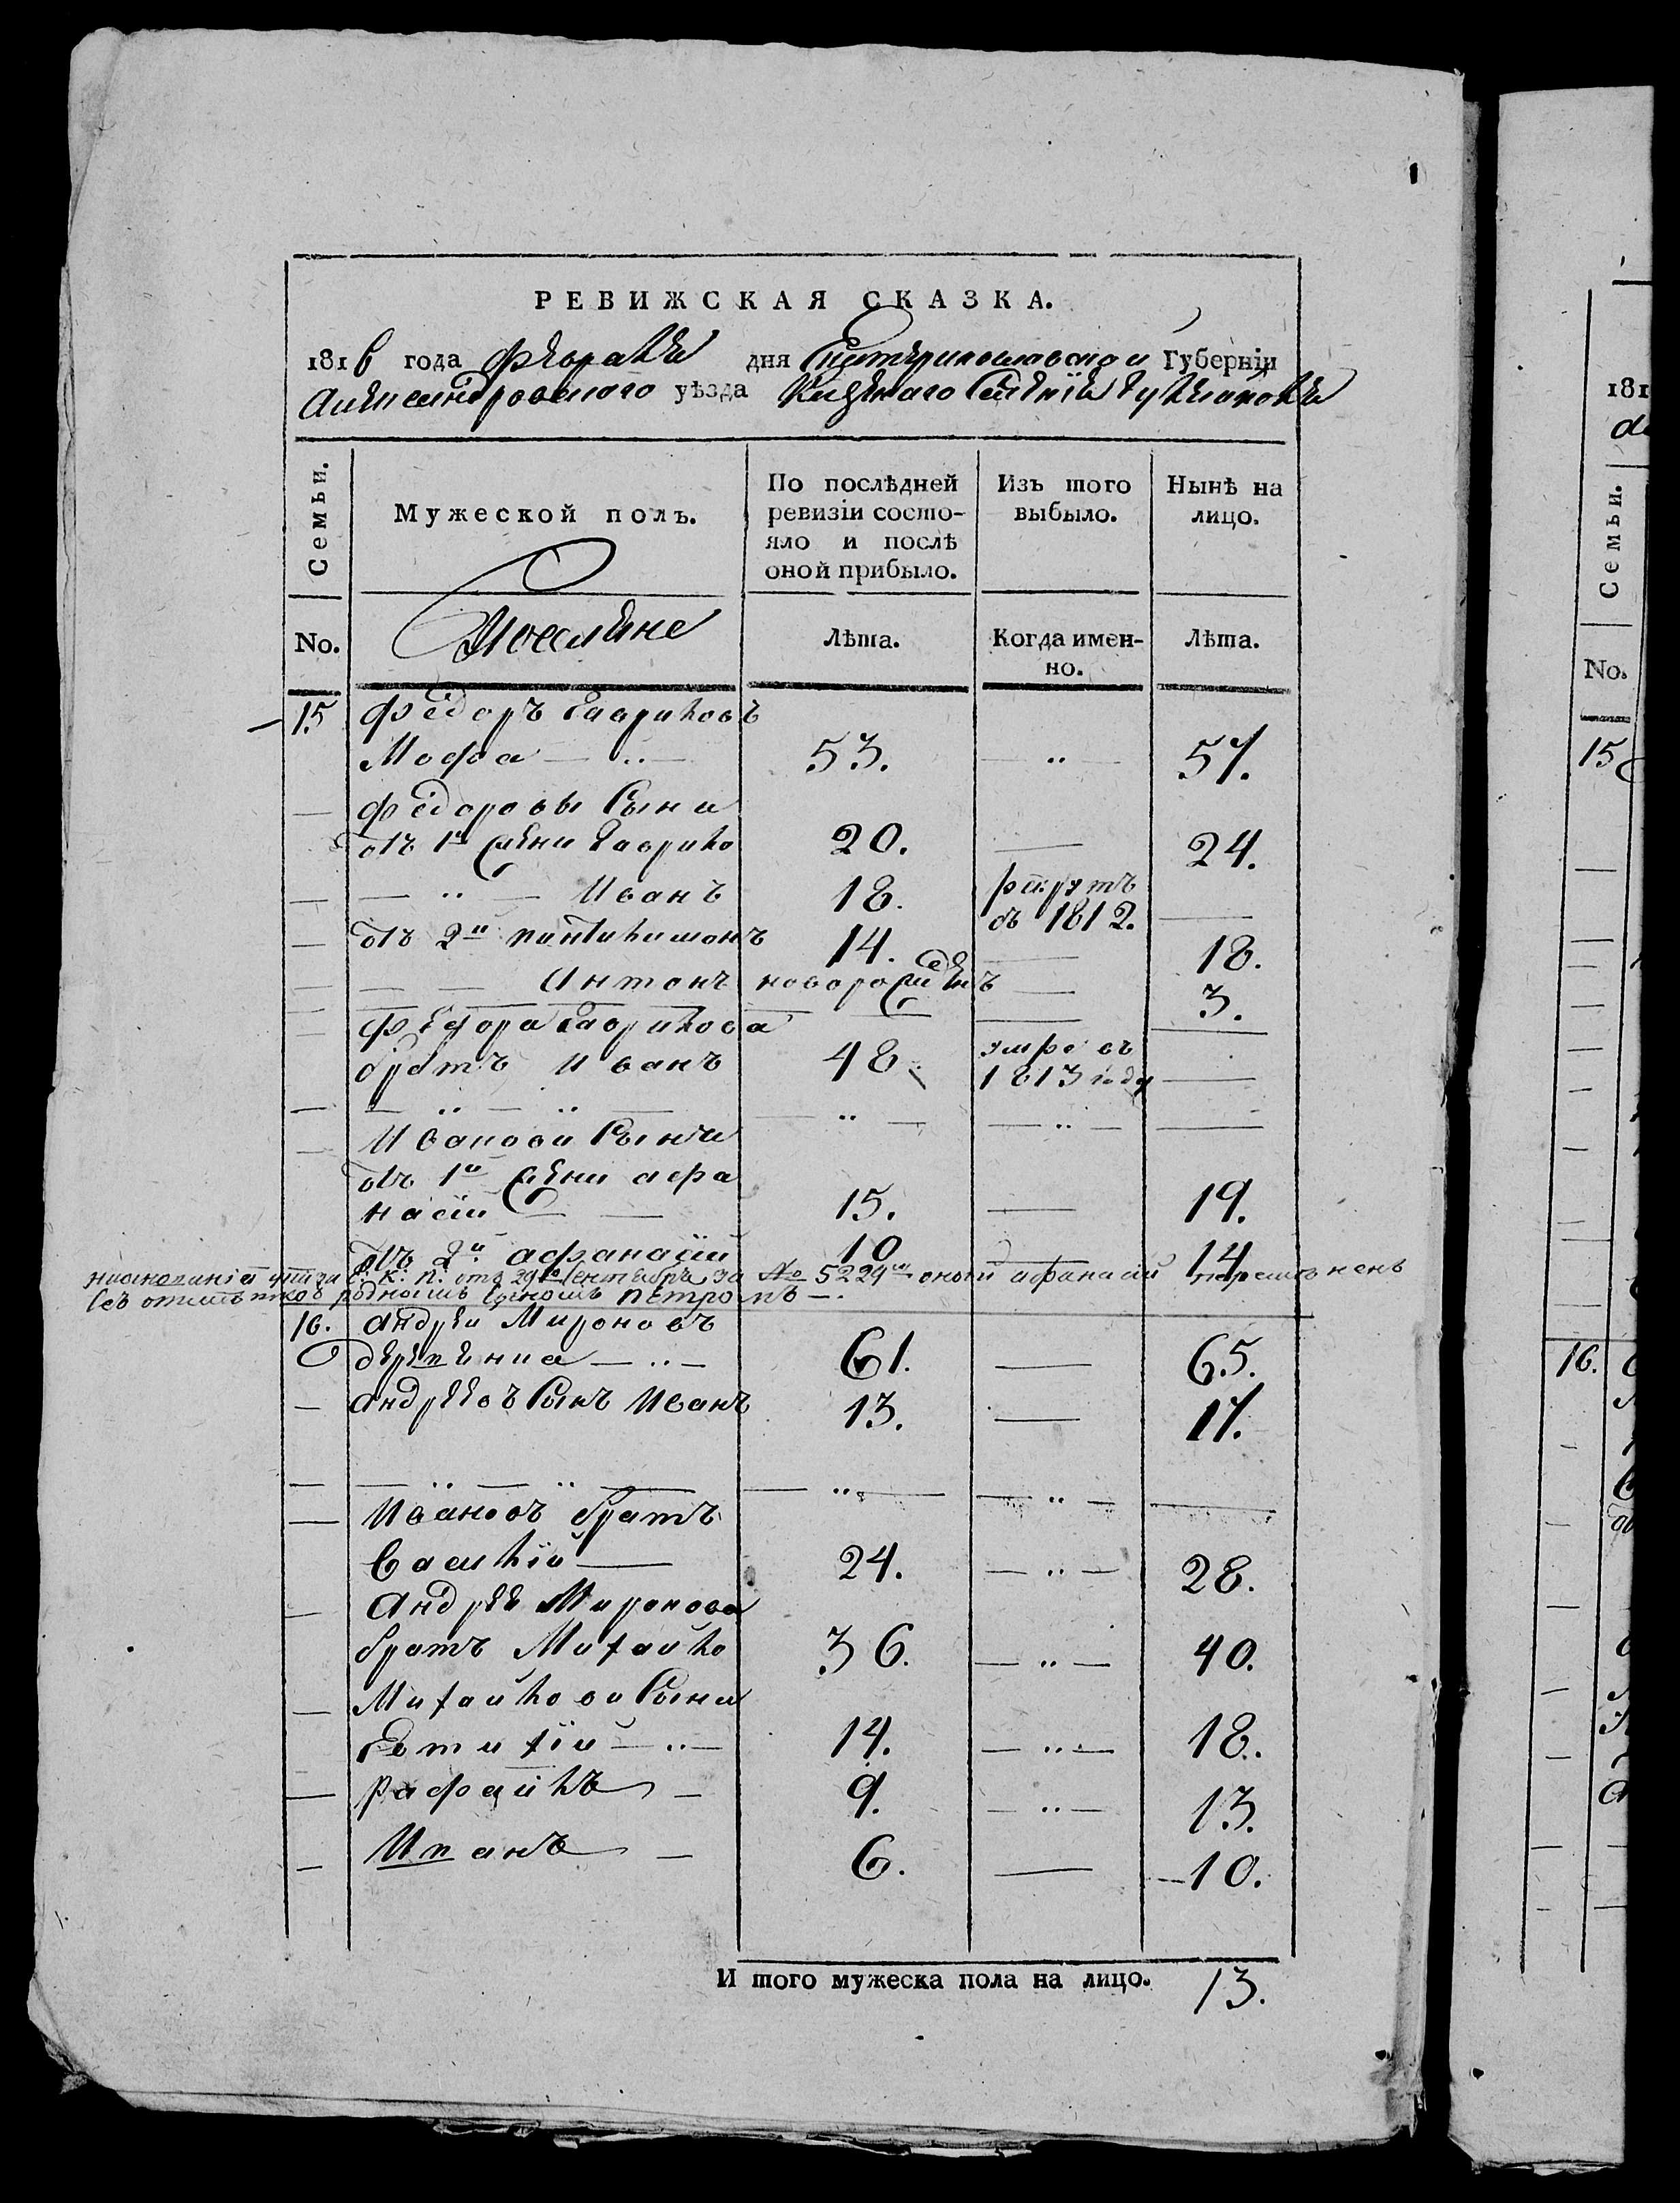 1
РЕВИЖСКАЯ СКАЗКА.
1816 года февраля дня Екатеринославской Губернiи
Александровского уѣзда Казенаго Селенiя
Семьи.
Мужеской полъ.
По послѣдней ревизiи состояло и послѣ оной прибыло.
Изъ того выбыло.
Нынѣ на лицо.
No.
Поселяне
Лѣта.
Когда именно.
Лѣта.
15. Федоръ Гавриловъ
Мофа — 53. — 57.
Федоровы Сыни
отъ 1й Жени Гаврило 20. — 24.
— Иванъ 18. рекрутъ въ 1812. —
отъ 2й пантилимонъ 14. — 18.
— — Антонъ новорожденъ — 3.
Федора Гаврилова
братъ Иванъ 48. умре въ 1813 году —
Иванови Сыни
отъ 1й Жени Афа
насiй — 15. — 19.
отъ 2й афанасiй 10 — 14
Е: К: П: отъ 29го Сентября за № 5229м оной афанасiй
родномъ Сыномъ Петромъ —.
16. Андрей Мироновъ
61. — 65.
Андреевъ Сынъ Иванъ 13. — 17.
Ивановъ братъ
Василiй — 24. — 28.
Андрея Миронова
братъ Михайло 36. — 40.
Михайлови Сыни
Евтихiй — 14. — 18.
Рафаилъ — 9. — 13.
Иванъ — 6. — 10.
И того мужеска пола на лицо. 13.
181
Семьи.
No.
15
16.